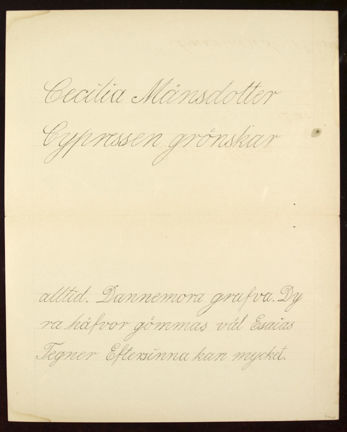 Cecilia Månsdotter
Cypressen grönskar
alltid. Dannemora grufva. Dy
ra håfvor gömmas väl Esaias
Tegner Eftersinna kan mycket.